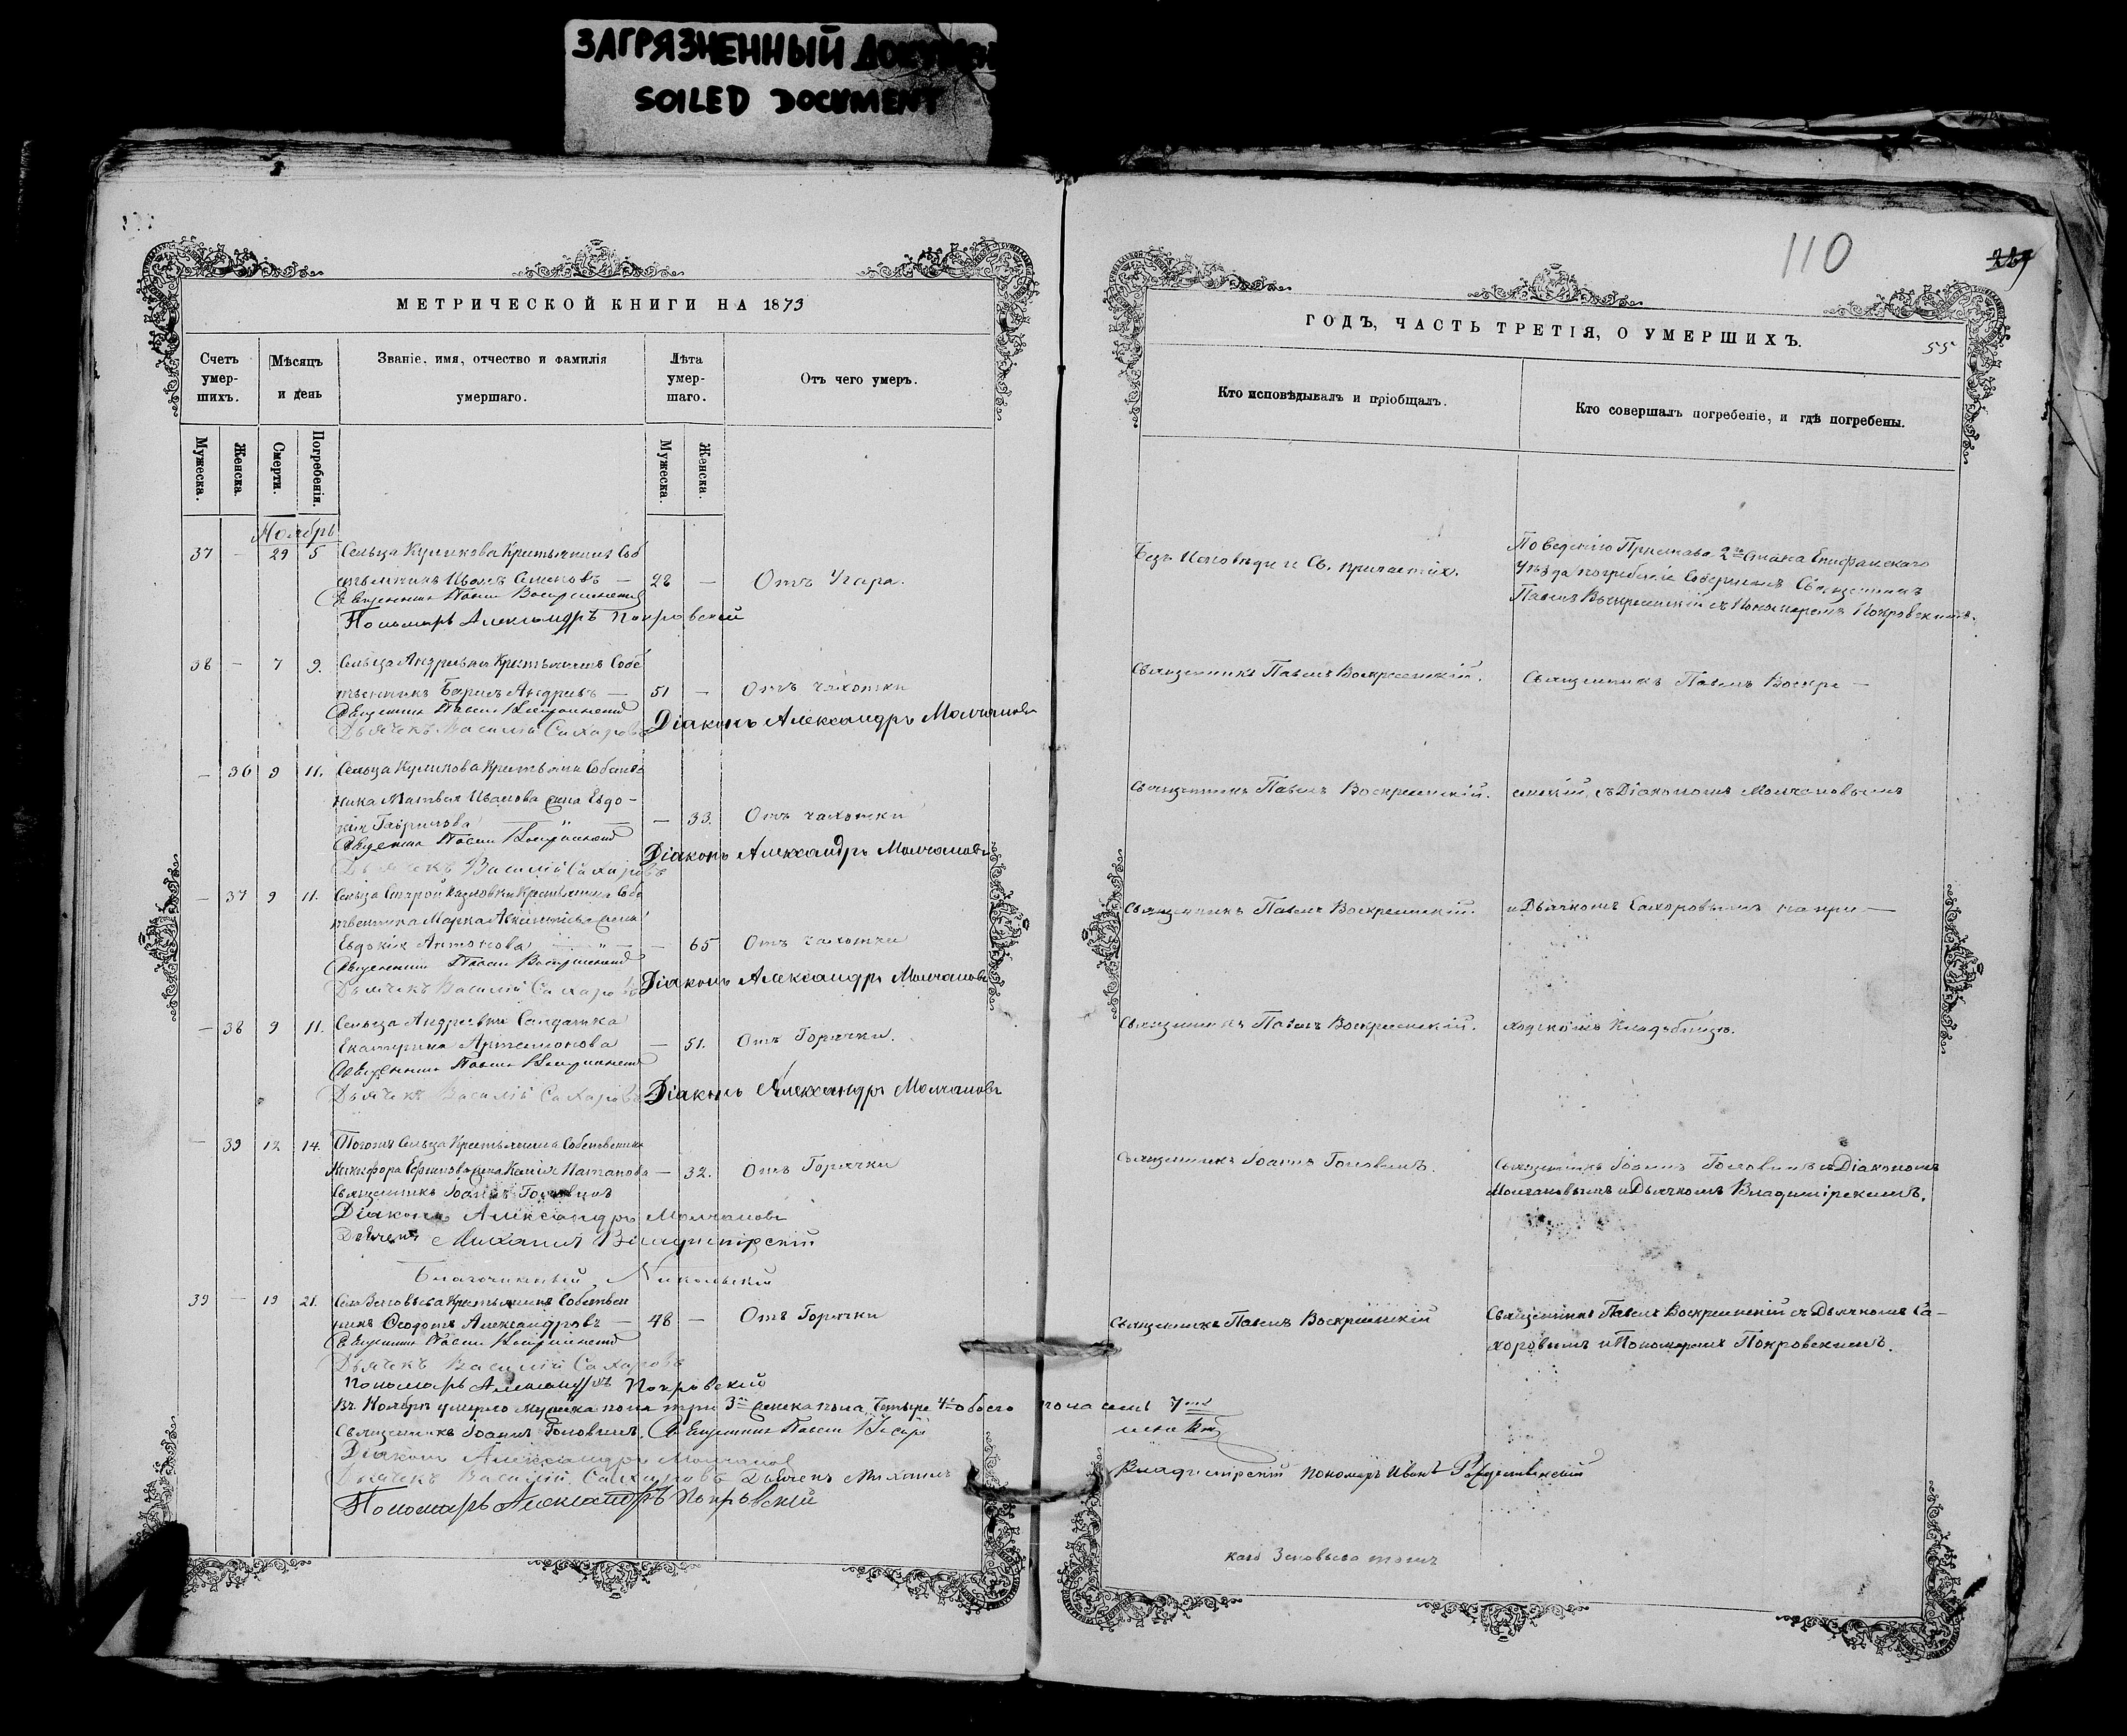 ЗАГРЯЗНЕННЫЙ ДОКУМЕН
SOILED DOCUMENT
МЕТРИЧЕСКОЙ КНИГИ НА 1873
Счетъ умер-шихъ.
Мѣсяцъ и день
Званіе, имя, отчество и фамилія умершаго.
Лѣта умер-шаго.
Отъ чего умеръ.
Мужеска.
Женска.
Смерти.
Погребенія.
Мужеска.
Женска.
Ноябрь
37 - 29 5 Сельца Куликова Крестьянинъ Соб
ственникъ Иванъ Семеновъ — 28 — Отъ Угара.
Священникъ Павелъ Воскресенскій
Пономарь Александръ Покровскій
38 - 7 9. Сельца Андреевки Крестьянинъ Собс
твенникъ Андреевъ — 51 — Отъ чахотки
Священникъ Павелъ Воскресенскій
Дьячекъ Василій Сахаровъ Діаконъ Александръ Молчановъ
— 36 9 11. Сельца Куликова Крестьянина Собстве
ника Матвея Иванова жена Евдо-
кія Гаврилова — 33. Отъ чахотки
Священникъ Павелъ Воскресенскій
Діаконъ Александръ Молчановъ
Дьячекъ Василій Сахаровъ
— 37 9 11. Сельца Старой Крестьянина Собс
твенника Марка жена
Евдокія Антонова — 65 Отъ чахотки
Священникъ Павелъ Воскресенскій
Дьячекъ Василій Сахаровъ Діаконъ Александръ Молчановъ
— 38 9 11. Сельца Андреевки Солдатка
Екатерина Артемонова — 51. Отъ Горячки.
Священникъ Павелъ Воскресенскій
Дьячекъ Василій Сахаровъ Діаконъ Александръ Молчановъ
— 39 12 14. Тогожъ Сельца Крестьянина Собственника
Никифора Ефимова жена — 32. Отъ Горячки
Священникъ Іоаннъ Головинъ
Діаконъ Александръ Молчановъ
Дьячекъ Михаилъ Владимірскій
Благочинный Никольскій
39 — 19 21. Крестьянинъ Собствен
никъ Ѳеодотъ Александровъ — 48 — Отъ Горячки
Священникъ Павелъ Воскресенскій
Дьячекъ Василій Сахаровъ
Пономарь Александръ Покровскій
Въ Ноябрѣ умерло мужеска пола три 3 женска пола четыре 4 обоего
Священникъ Іоаннъ Головинъ. Священникъ Павелъ
Діаконъ Александръ Молчановъ
Дьячекъ Василій Сахаровъ Дьячекъ Михаилъ
Пономарь Александръ Покровскій
110
ГОДЪ, ЧАСТЬ ТРЕТІЯ, О УМЕРШИХЪ.
55
Кто исповѣдывалъ и пріобщалъ.
Кто совершалъ погребеніе, и гдѣ погребены.
Безъ Исповѣди и Св. причастія.
По Пристава 2 Стана Епифанскаго
Уѣзда погребеніе совершалъ Священникъ
Павелъ Воскресенскій съ Пономаремъ Покровскимъ.
Священникъ Павелъ Воскресенскій.
Священникъ Павелъ Воскре —
Священникъ Павелъ Воскресенскій.
сенскій, съ Діакономъ Молчановымъ
Священникъ Павелъ Воскресенскій.
и Дьячкомъ Сахаровымъ на при —
Священникъ Павелъ Воскресенскій.
ходскомъ кладбищѣ.
Священникъ Іоаннъ Головинъ.
Священникъ Іоаннъ Головинъ съ Діакономъ
Молчановымъ и Дьячкомъ Владимірскимъ.
Священникъ Павелъ Воскресенскій
Священникъ Павелъ Воскресенскій съ Дьячкомъ Са-
харовымъ и Пономаремъ Покровскимъ.
пола семь 7
Владимірскій Пономарь Иванъ Рождественскій